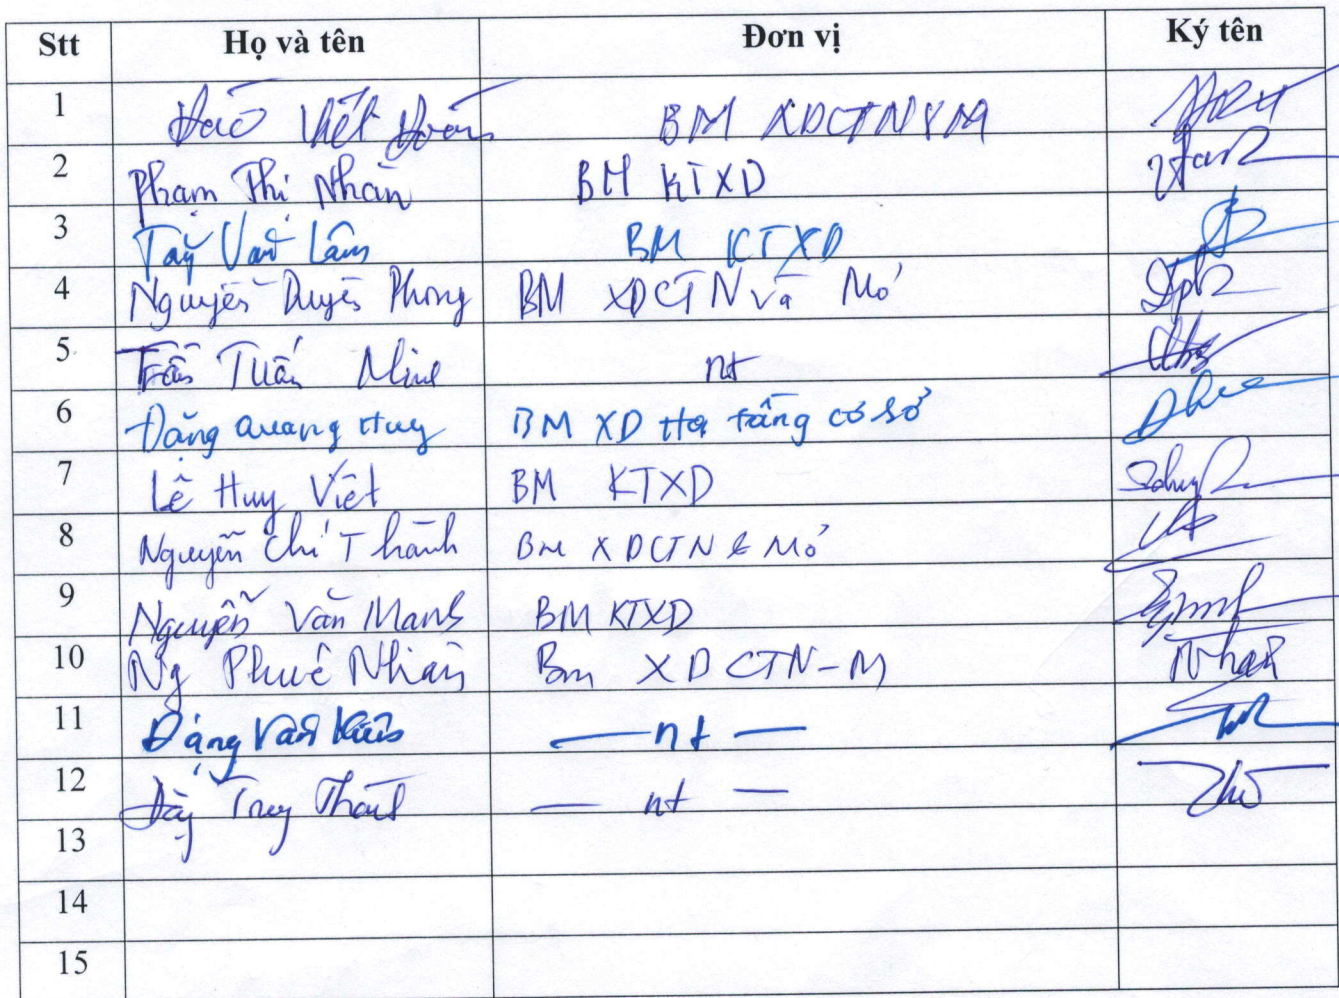 Stt Họ và tên Đơn vị Ký tên
1 Đào Viết Đoàn BM XDCTN&M
2 Phạm Thị Nhàn BM KTXD
3 Tạ Văn Lâm BM KTXD
4 Nguyễn Duyên Phong BM XDCTN và Mỏ
5 Trần Tuấn Minh nt
6 Đặng Quang Huy BM XD Hạ tầng cơ sở
7 Lê Huy Việt BM KTXD
8 Nguyễn Chí Thành BM XDCTN & Mỏ
9 Nguyễn Văn Mạnh BM KTXD
10 Ng Phúc Nhân Bm XDCTN-M
11 Đặng Văn Kiên — nt —
12 Đặng Trung Thành — nt —
13
14
15